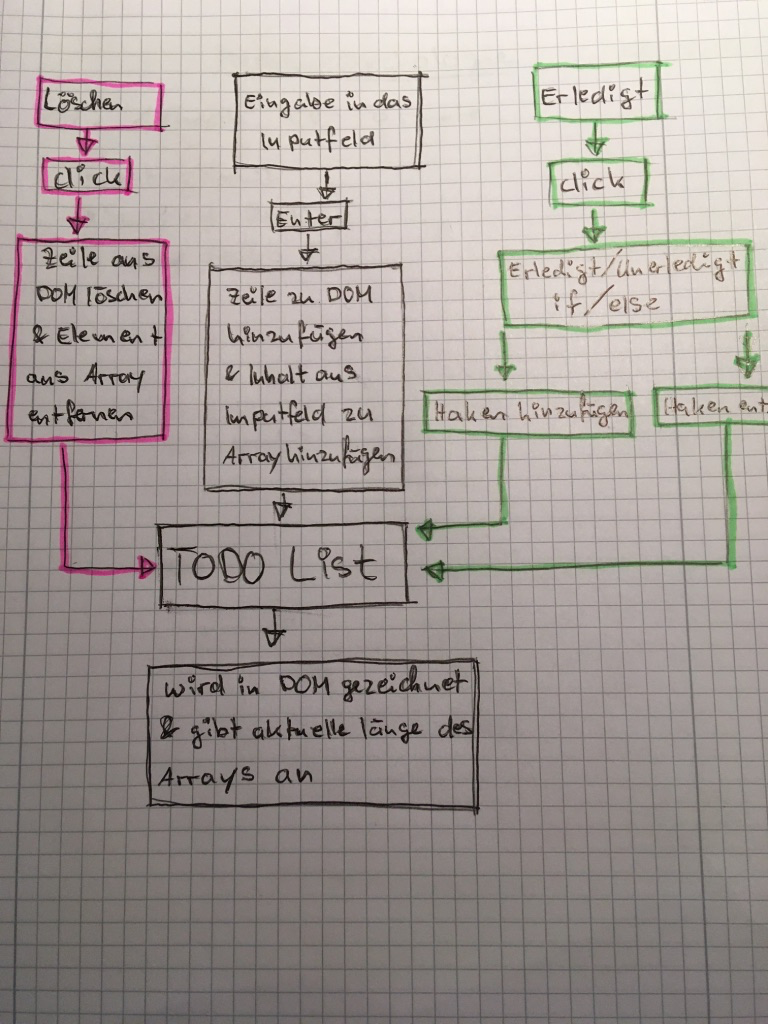 Löschen
click
Zeile aus
DOM löschen
& Element
aus Array
entfernen
Eingabe in das
Inputfeld
Enter
Zeile zu DOM
hinzufügen
& Inhalt aus
Inputfeld zu
Array hinzufügen
Erledigt
click
Erledigt/Unerledigt
if/else
Haken hinzufügen
Haken ent
TODO List
wird in DOM gezeichnet
& gibt aktuelle länge des
Arrays an